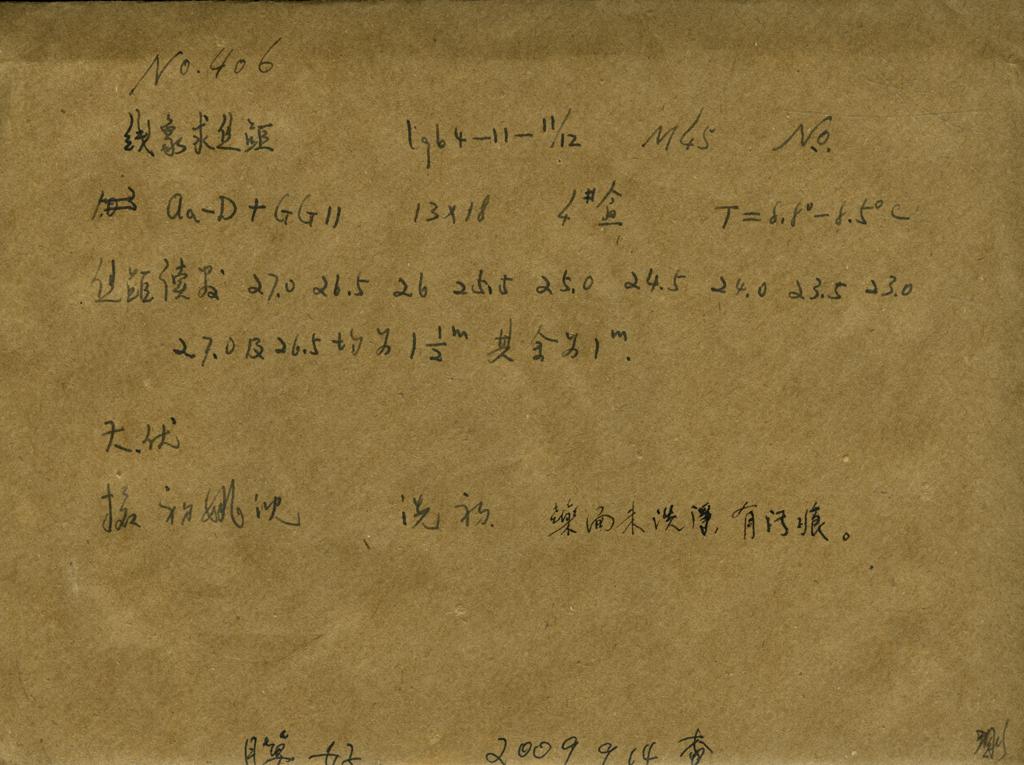 No.406
线象求丝距 1964-11-11/12 M45 No.
103 aa-D+GG11 13x18 4#盒 T=8.8°-8.5°C
丝距读数 27.0 26.5 26 25.5 25.0 24.5 24.0 23.5 23.0
27.0及26.5均为1½m 其余为1m.
天.伏
摄 初姚沈 洗 初 药面未洗净,有污痕。
2009 9 14 查